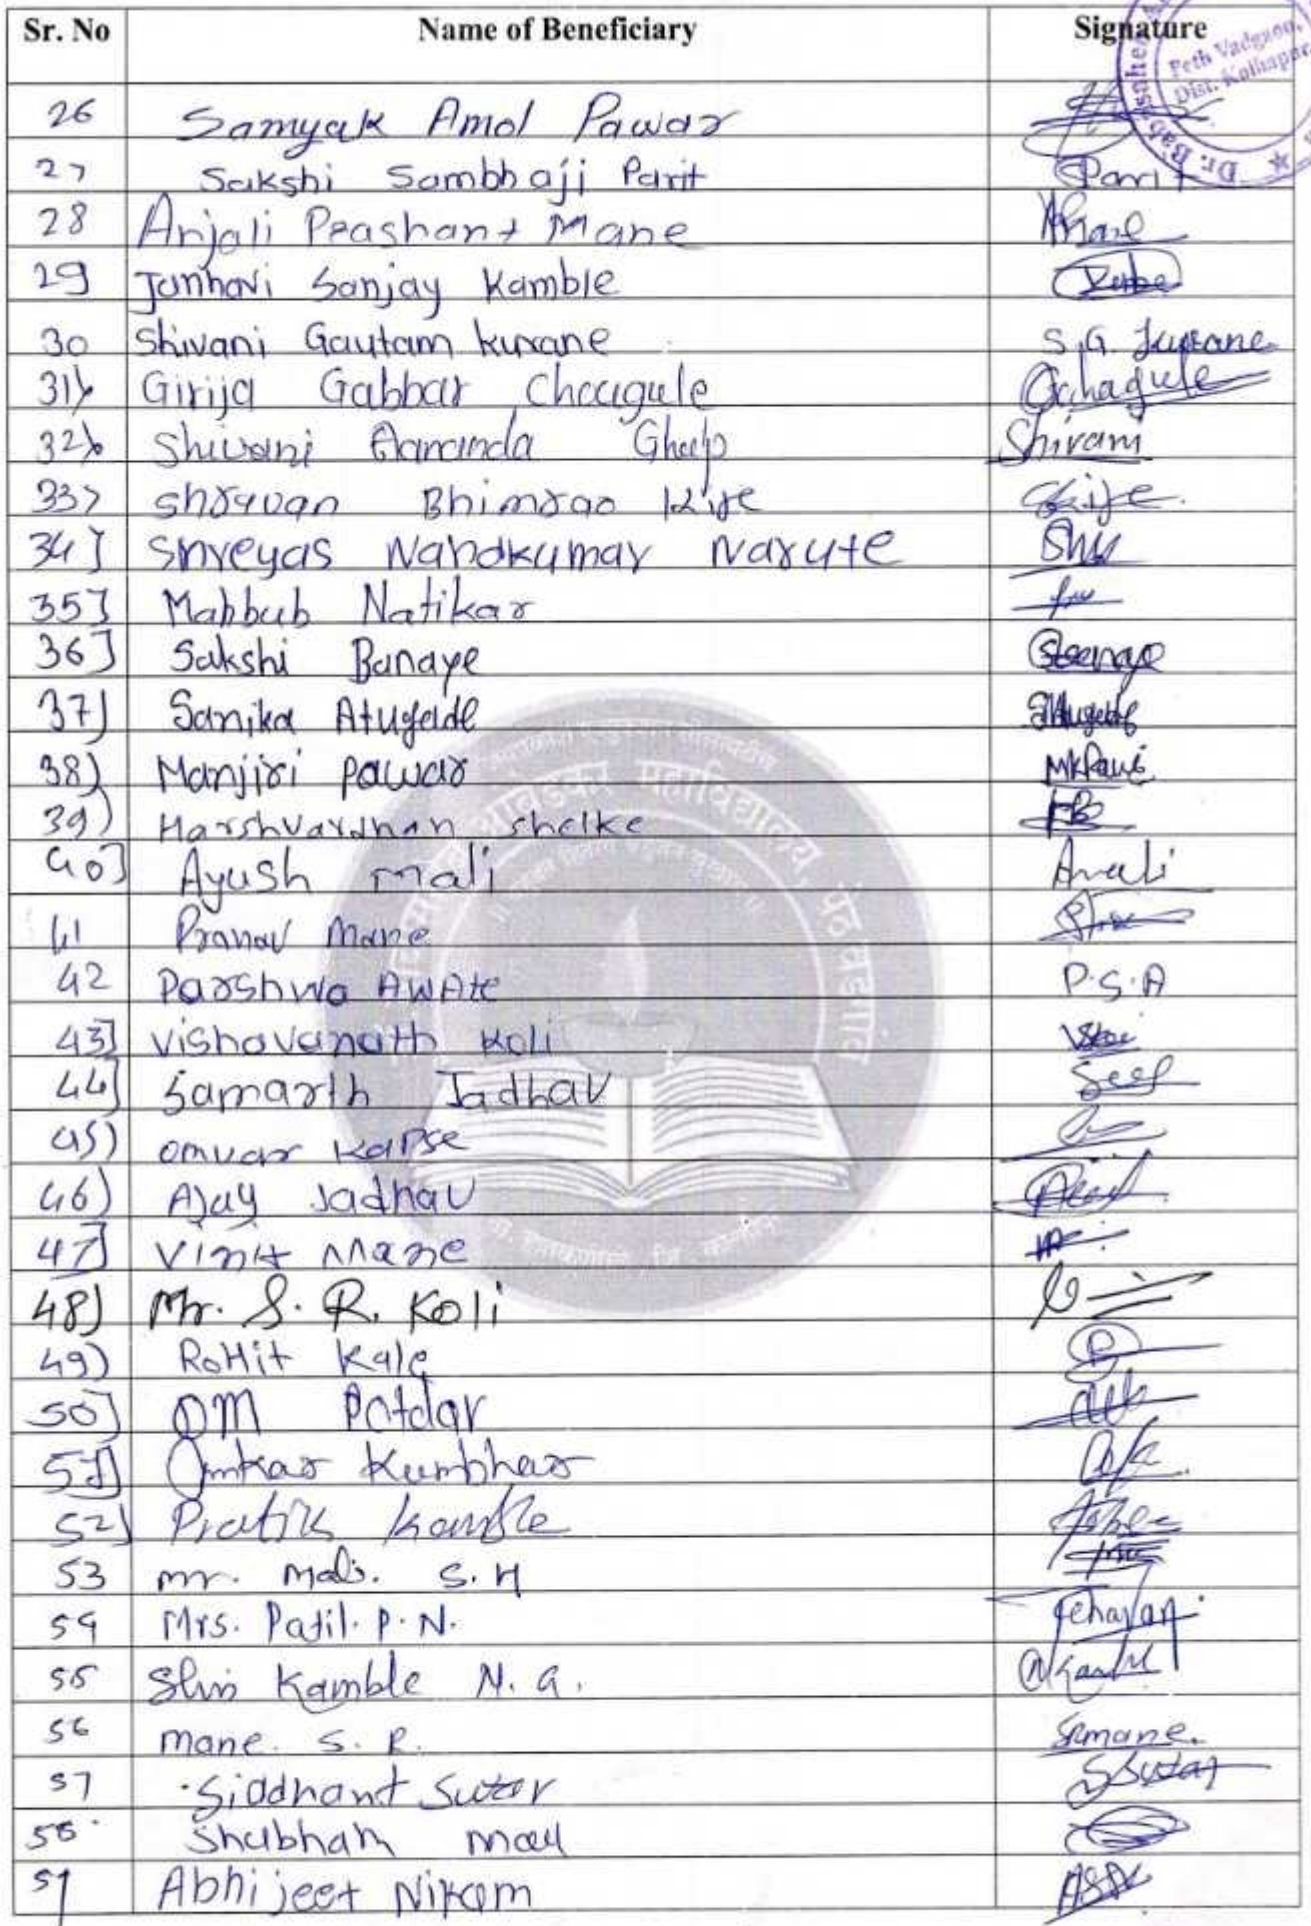 Sr. No Name of Beneficiary Signature
Peth Vadgaon,
Dist. Kolhapur
Dr. Babasaheb
26 Samyak Amol Pawar
27 Sakshi Sambhaji Parit Parit
28 Anjali Prashant Mane
29 Janhavi Sanjay Kamble
30 Shivani Gautam kurane S.G. kurane
31) Girija Gabbar Chaugule
32) Shivani Aananda Shivani
33) Shravan Bhimrao
34] Shreyas Nandkumar Narute
35] Mahbub Natikar
36] Sakshi Banaye
37) Sanika Atugade
38) Manjiri Pawar
39) Harshvardhan shelke
40] Ayush mali Amali
41 Pranav Mane
42 Parshwa AWAte P.S.A
43] Vishavanath Koli
44] Samarth Jadhav
45) omvar Kapse
46) Ajay Jadhav
47] Vinit Mane
48) Mr. S. R. Koli
49) RoHit Kale
50] OM Potdar
51] Omkar Kumbhar
52) Pratik Kamble
53 mr. Mali. S. H
54 Mrs. Patil. P. N.
55 Kamble N. G.
56 mane. S. R. Srmane.
57 Siddhant Sutar SSutar
58 Shubham
59 Abhijeet Nikam
पेठ वडगांव